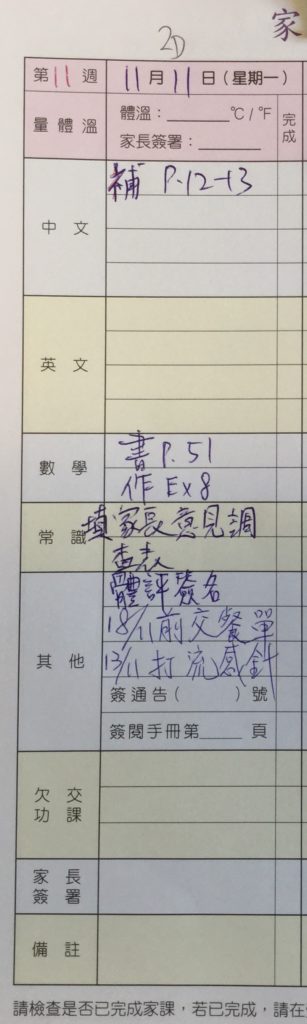 2D
家
第11週 11月11日(星期一)
量體溫 體溫:______ °C/°F 完成
家長簽署:______
中文 補 P.12-13
英文
數學 書 P.51
作 Ex 8
常識 填家長意見調
查表
體評簽名
18/11前交餐單
其他 13/11打流感針
簽通告( )號
簽閱手冊第____頁
欠交功課
家長簽署
備註
請檢查是否已完成家課,若已完成,請在